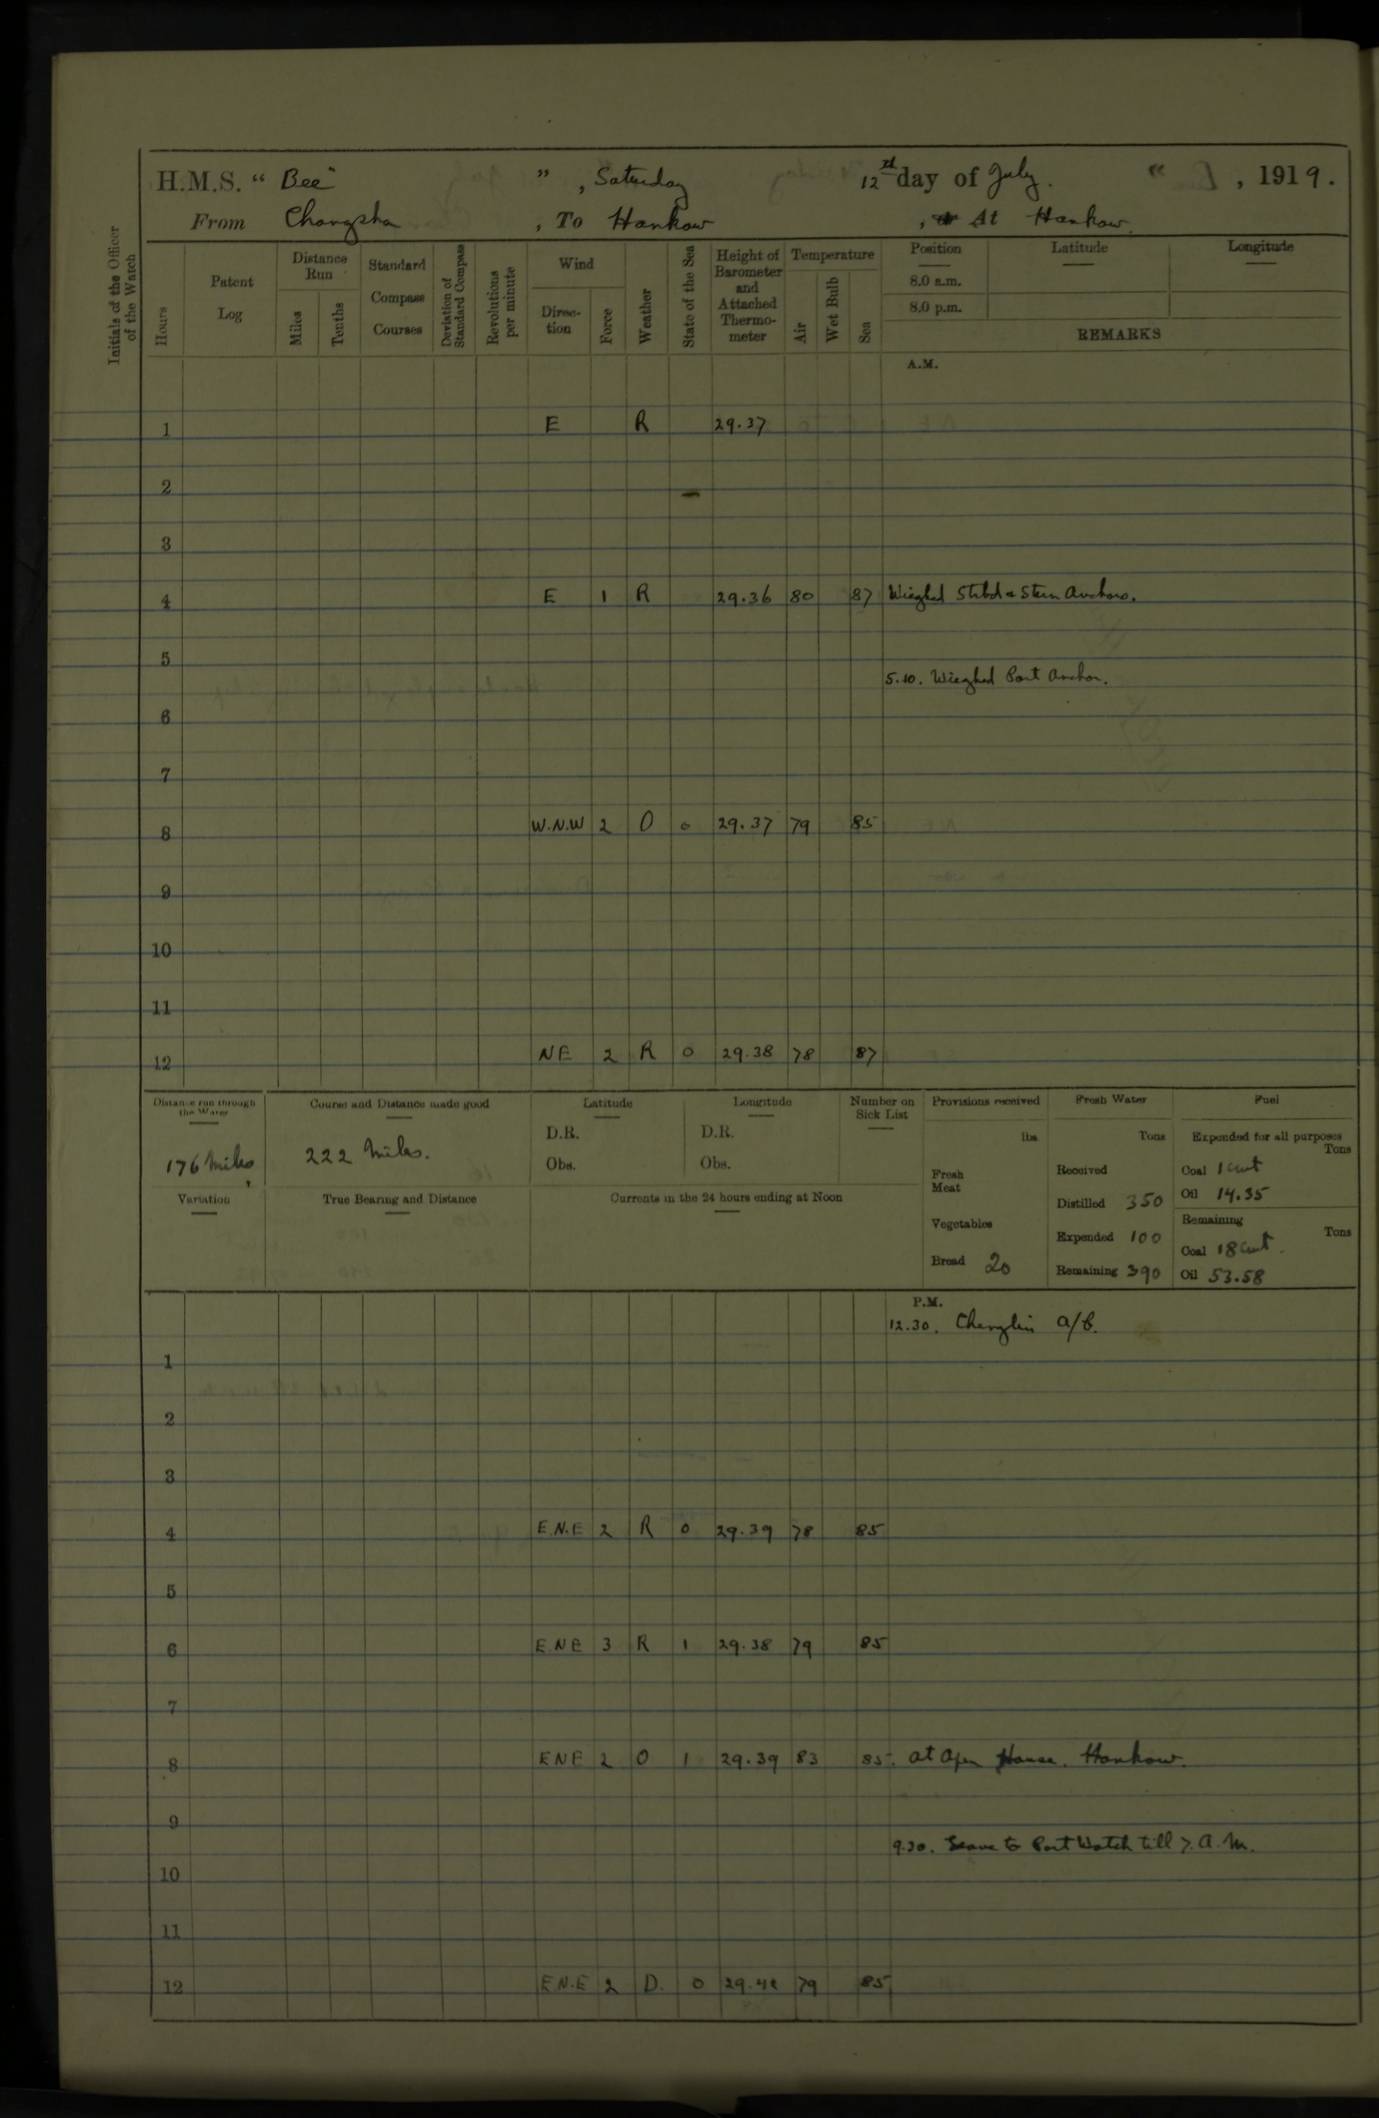 H.M.S. “ Bee ” , Saturday 12th day of July. , 1919.
From Changsha , To Hankow , At Hankow.
Initials of the Officer of the Watch
Hours
Patent Log
Distance Run
Miles
Tenths
Standard Compass Courses
Deviation of Standard Compass
Revolutions per minute
Wind
Direction
Force
Weather
State of the Sea
Height of Barometer and Attached Thermometer
Temperature
Air
Wet Bulb
Sea
Position
Latitude
Longitude
8.0 a.m.
8.0 p.m.
REMARKS
A.M.
1 E R 29.37
2
3
4 E 1 R 29.36 80 87 Wieghed Stbd & Stern Anchors.
5
5.10. Wieghed Port Anchor.
6
7
8 W.N.W 2 O 0 29.37 79 85
9
10
11
12 NE 2 R 0 29.38 78 87
Distance run through the Water
176 Miles
Course and Distance made good
222 Miles.
Latitude
D.R.
Obs.
Longitude
D.R.
Obs.
Number on Sick List
Variation
True Bearing and Distance
Currents in the 24 hours ending at Noon
Provisions received
lbs.
Fresh Meat
Vegetables
Bread 20
Fresh Water
Tons
Received
Distilled 350
Expended 100
Remaining 390
Fuel
Expended for all purposes
Tons
Coal 1 cwt
Oil 14.35
Remaining
Tons
Coal 18 cwt.
Oil 53.58
P.M.
12.30. Chenglin a/b.
1
2
3
4 E.N.E 2 R 0 29.39 78 85
5
6 E.N.E 3 R 1 29.38 79 85
7
8 ENE 2 O 1 29.39 83 85. At Hankow.
9
9.30. Leave to Port Watch till 7. A.M.
10
11
12 E.N.E 2 D. 0 79 85